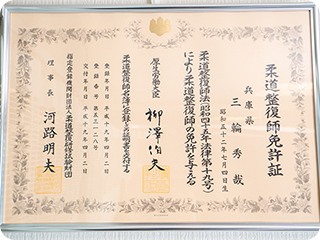 柔道整復師免許証
兵庫県
三輪秀哉
昭和五十二年七月四日生
柔道整復師法(昭和四十五年法律第十九号)
により柔道整復師の免許を与える
厚生労働大臣
柳澤伯夫
柔道整復師名簿に登録し免許証明書を交付する
登録年月日 平成十九年四月二日
登録番号
交付年月日 平成十九年四月二日
指定登録機関財団法人柔道整復研修試験財団
理事長
河路明夫